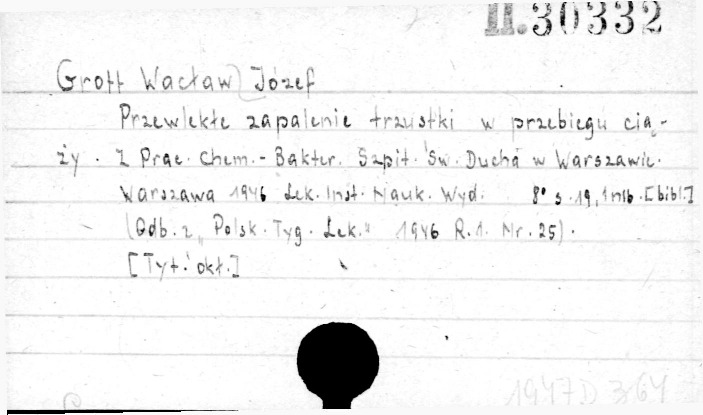 II.30332
Groff Wacław Józef
Przewlekłe zapalenie trzustki w przebiegu cią-
ży. Z Prac. Chem.-Bakter. Szpit. Św. Ducha w Warszawie.
Warszawa 1946 Lek. Inst. Nauk. Wyd. 8° s. 19, 1 nlb. [bibl.]
(Odb. z „Polsk. Tyg. Lek." 1946 R.1. Nr. 25).
[Tyt. okł.]
1947 D 364